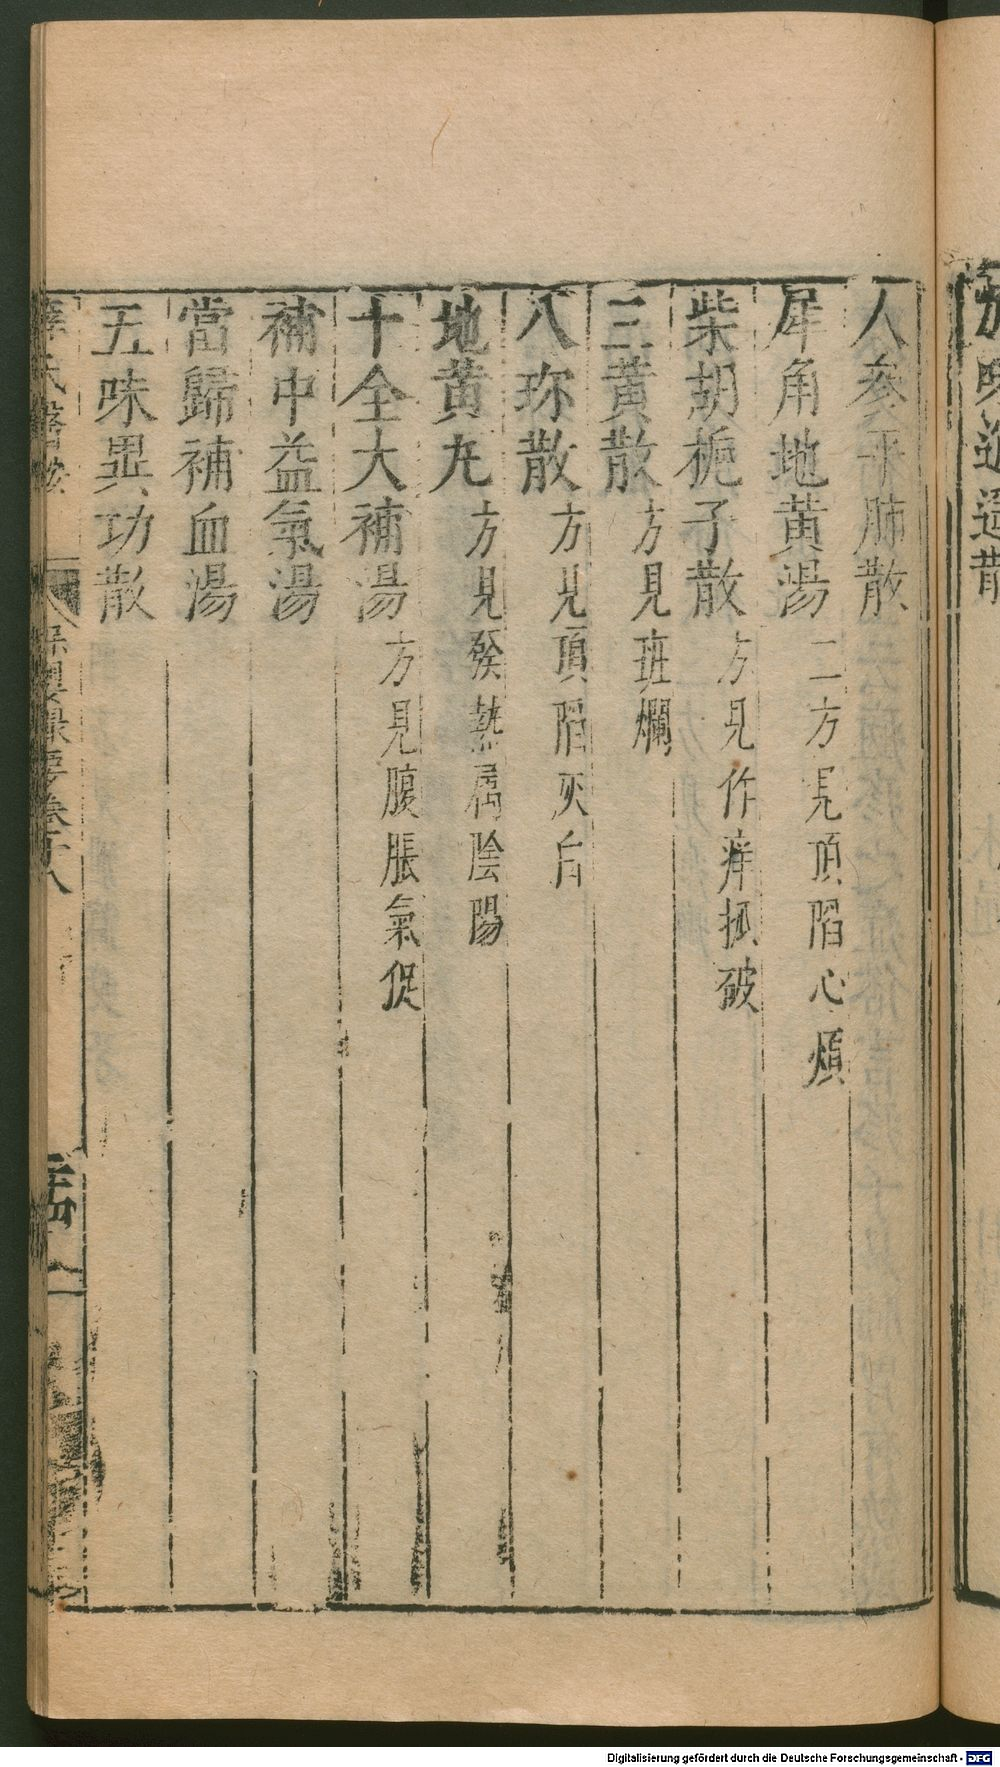 人參平肺散
犀角地黄湯 二方見頂陷心煩
柴胡梔子散 方見作痒抓破
三黄散 方見班爛
八珎散 方見頂陷灰白
地黄丸 方見發熱属陰陽
十全大補湯 方見腹脹氣促
補中益氣湯
當歸補血湯
五味異功散
保嬰撮要卷十八
Digitalisierung gefördert durch die Deutsche Forschungsgemeinschaft - DFG